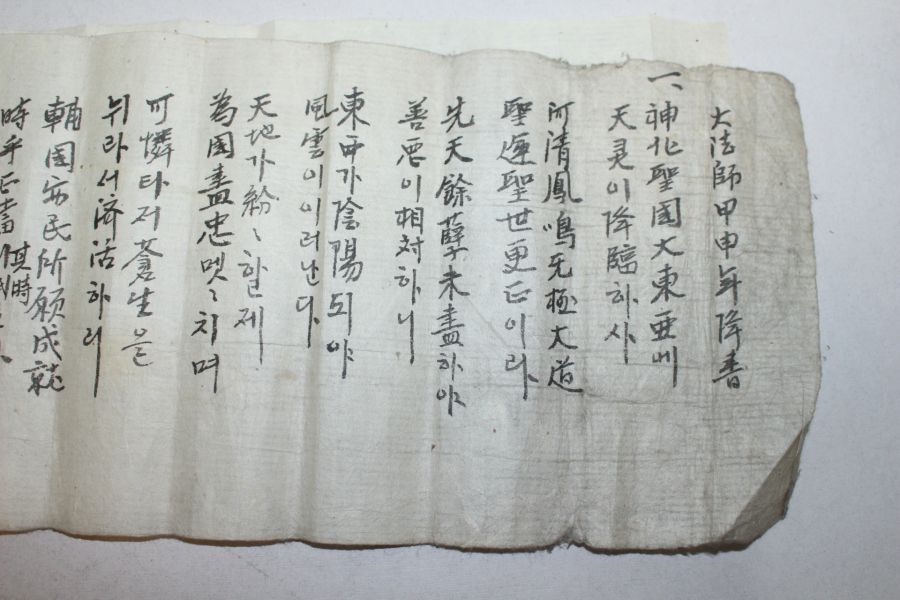 大法師甲申年降書
一、神北聖国大東亜에
天灵이降臨하사
河清鳳鳴旡極大道
聖運聖世更正이라
先天餘孽未盡하야
善悪이相対하니
東西가陰陽되야
風雲이이러난다
天地가紛々할제
為国盡忠몃々치며
可憐타저蒼生을
뉘라서濟活하리
輔国安民所願成就
時乎